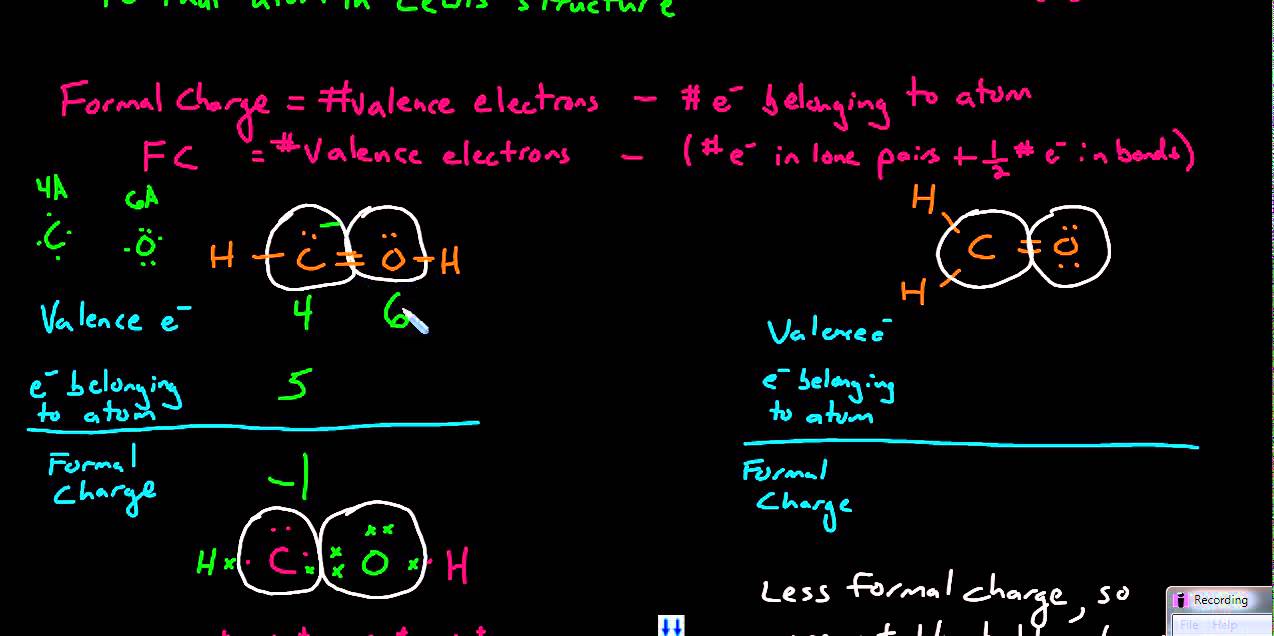 to that atom in Lewis structure
Formal Charge = #Valence electrons - # e⁻ belonging to atom
FC = #Valence electrons - (# e⁻ in lone pairs + 1/2 # e⁻ in bonds)
4A 6A H
C O H C = O H C = O
H
Valence e⁻ 4 6 Valence e⁻
e⁻ belonging 5 e⁻ belonging
to atom to atom
Formal -1 Formal
Charge Charge
H x C x x O x H
Less formal charge, so
Recording
File Help